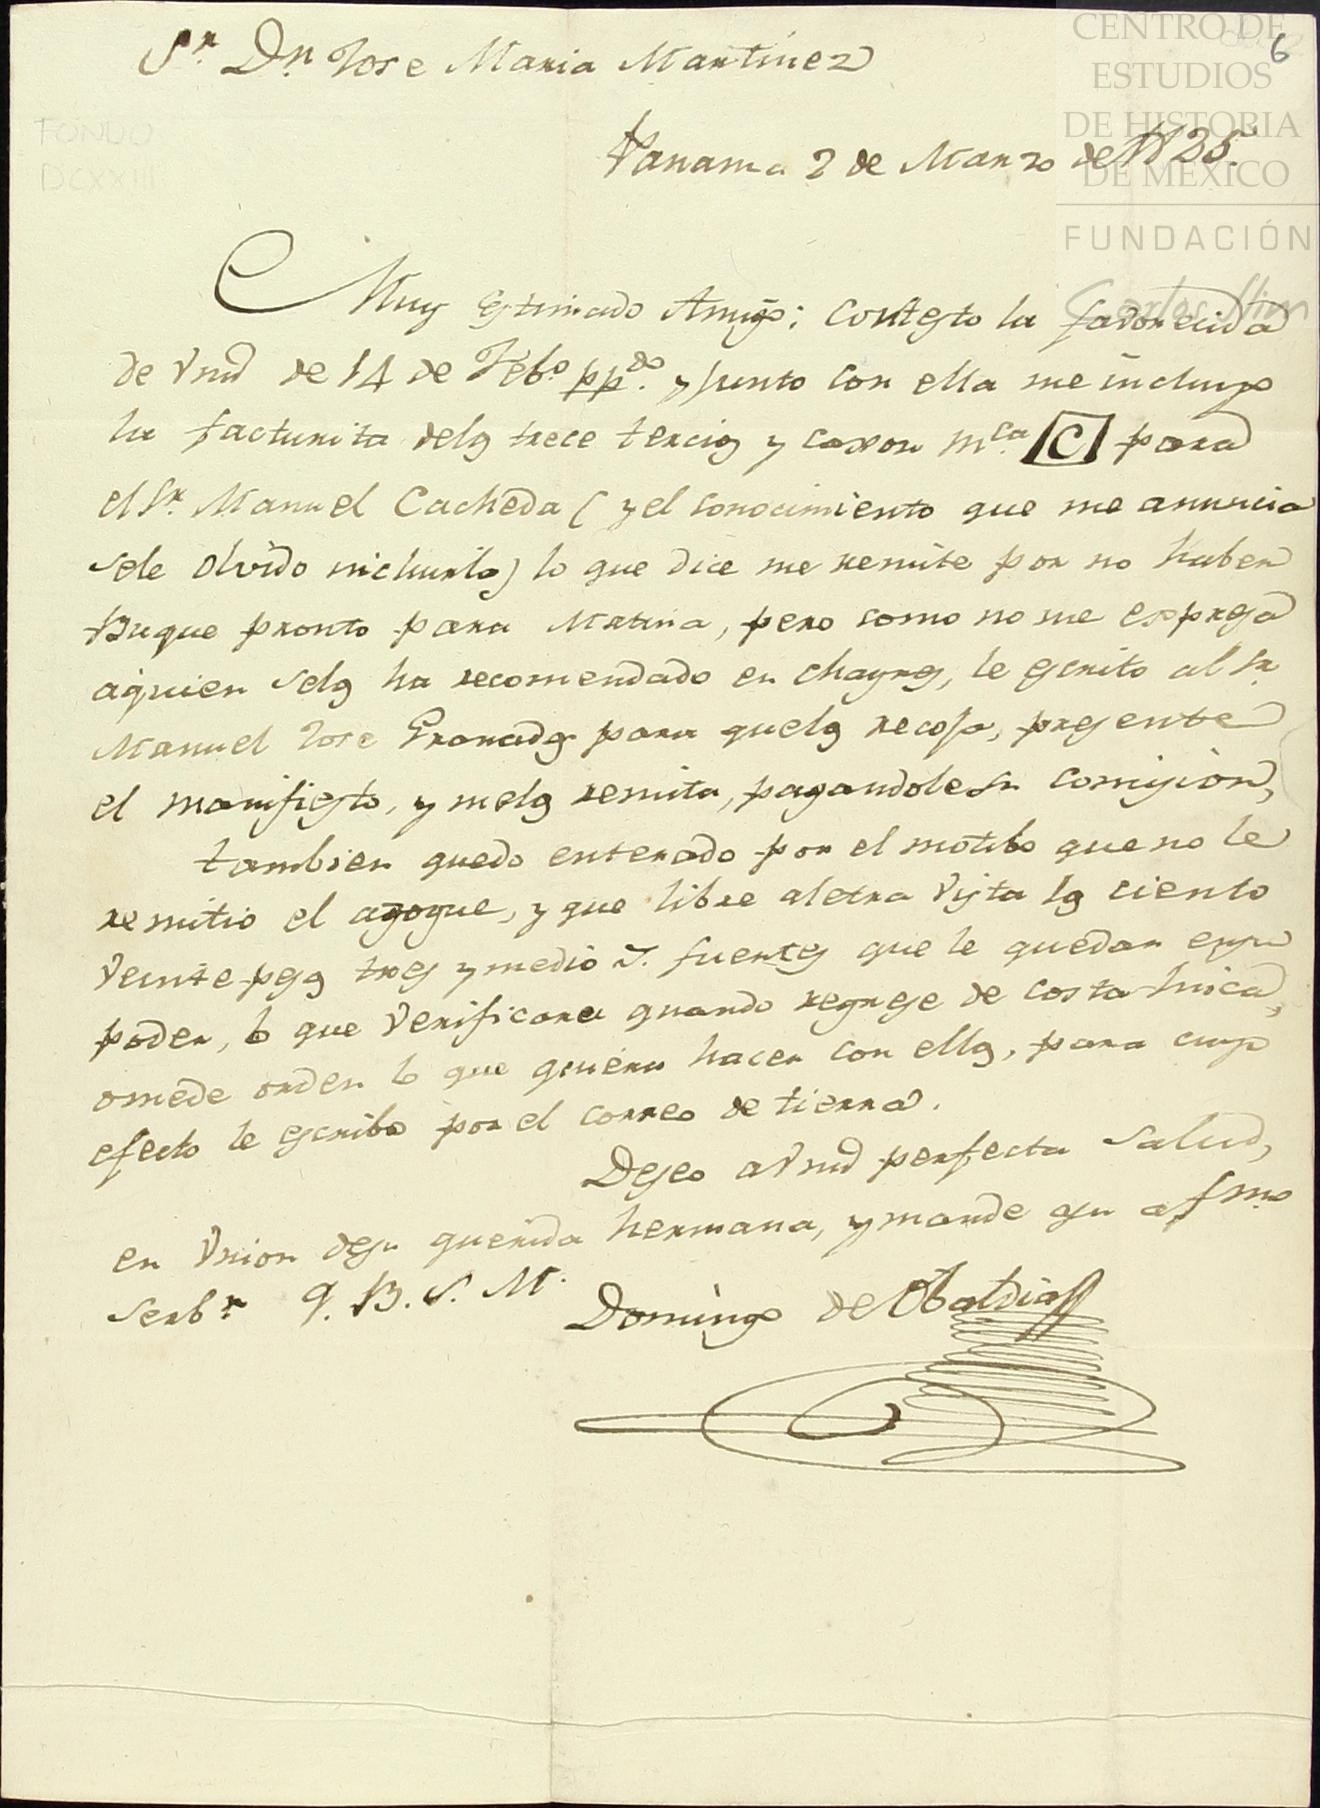 CENTRO DE
ESTUDIOS
DE HISTORIA
DE MÉXICO
FUNDACIÓN
Carlos Slim
6
FONDO
DCXXIII
Sr. Dn. Jose Maria Martinez
Panama 2 de Marzo de 1825.
Muy estimado Amigo: Contesto la faborecida
de Vmd de 14 de Febo. ppdo. y junto con ella me incluyo
la facturita delos trece tercios y caxon mca. C para
el Sr. Manuel Cacheda (y el conocimiento que me anuncia
sele olvido incluirlo) lo que dice me remite por no haber
Buque pronto para Matina, pero como no me expresa
aquien selos ha recomendado en Chagres, le escrito al Sr.
Manuel Jose Granados para quelos recoja, presente
el manifiesto, y melos remita, pagandole su comision,
tambien quedo enterado por el motibo que no le
remitio el azogue, y que libre aletra vista los ciento
veinte pesos tres y medio r. fuertes que le quedan ensu
poder, lo que verificare quando regrese de costa Rrica,
omede orden lo que quiera hacer con ellos, para cuyo
efecto le escribo por el correo de tierra.
Deseo a Vmd perfecta salud,
en Vnion desu querida hermana, y mande asu afmo
Serbr. Q. B. S. M.
Domingo de Obaldia